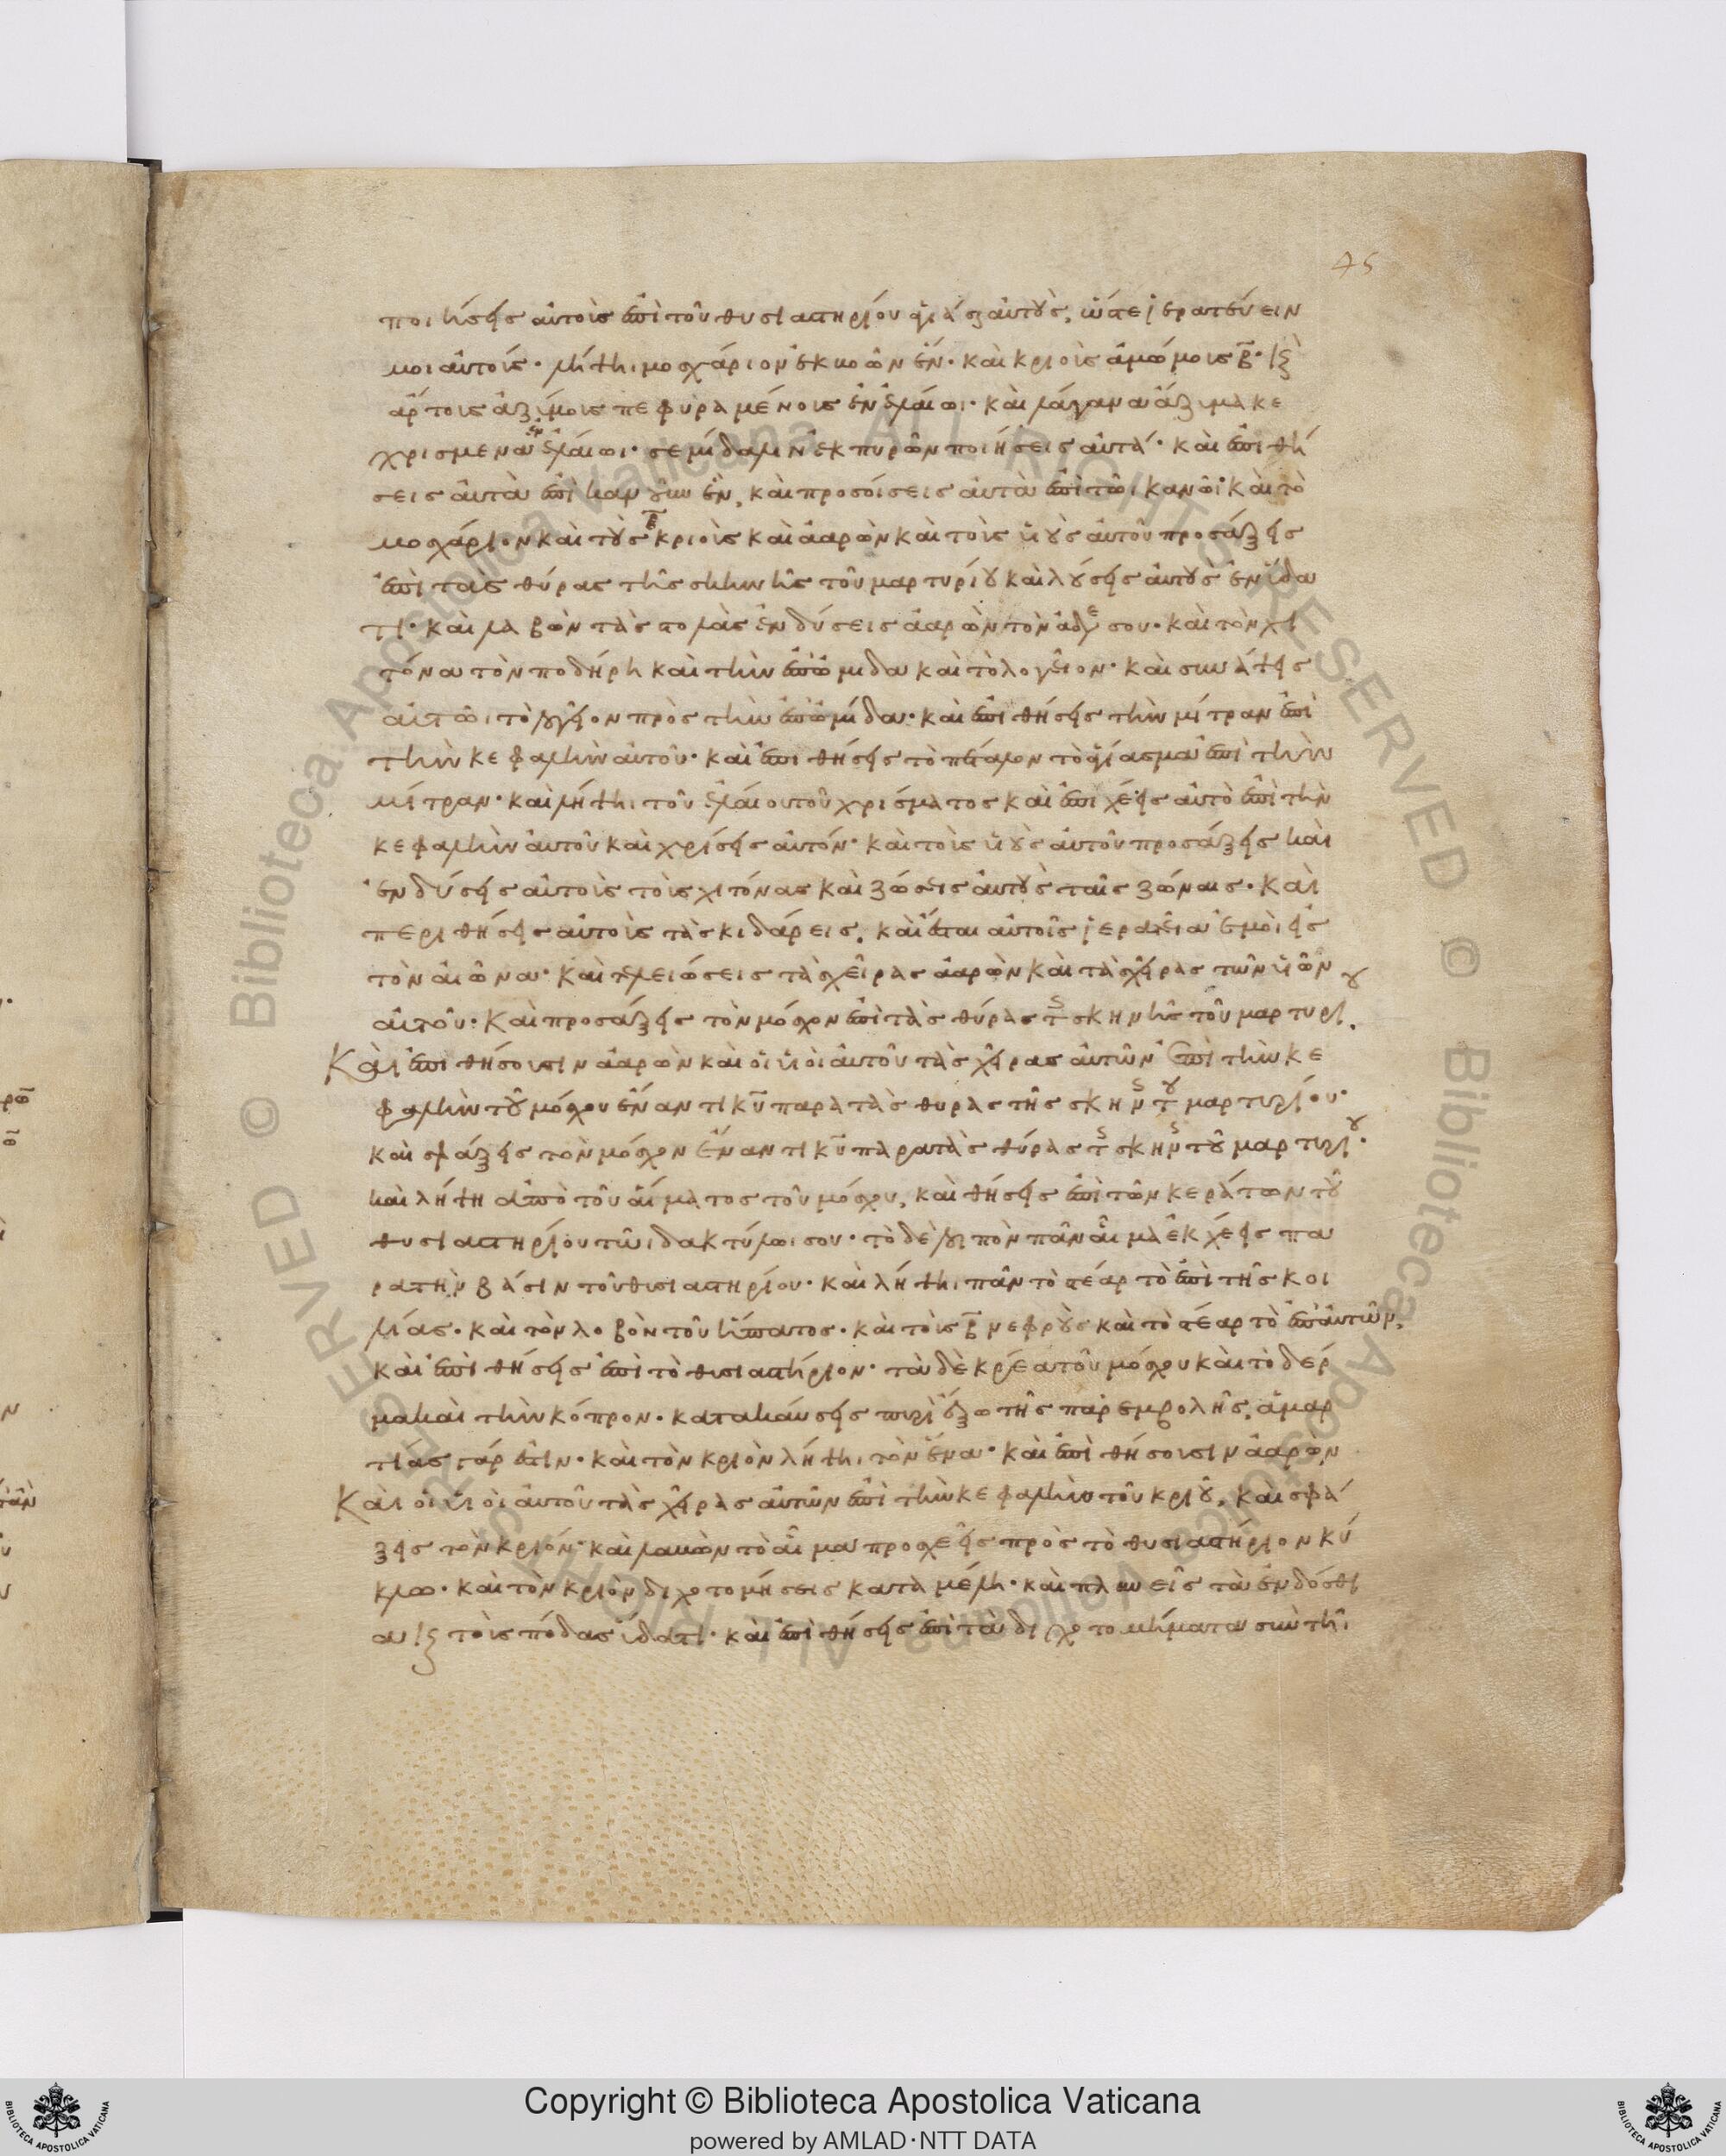 75
ποιήσεις αὐτοῖς ἐπὶ τοῦ θυσιαστηρίου ἁγιάσαι αὐτοὺς, ὥστε ἱερατεύειν
μοι αὐτοῖς· λήψη μοσχάριον ἐκ βοῶν ἕν· καὶ κριοὺς ἀμώμοις β̅· κ(αὶ)
ἄρτοις ἀζύμοις πεφυραμένοις ἐν ἐλαίωι· καὶ λάγανα ἄζυμα κε
χρισμένα ἐν ἐλαίωι· σεμίδαλιν ἐκ πυρῶν ποιήσεις αὐτά· καὶ ἐπιθή
σεις αὐτὰ ἐπὶ κανοῦν ἓν, καὶ προσοίσεις αὐτὰ ἐπὶ τῶι κανῶι· καὶ τὸ
μοσχάριον καὶ τοὺς β̅ κριοὺς καὶ ἀαρὼν καὶ τοὺς υἱοὺς αὐτοῦ προσάξεις
ἐπὶ ταῖς θύρας τῆς σκηνῆς τοῦ μαρτυρίου καὶ λούσεις αὐτοὺς ἐν ὕδα
τι· καὶ λαβὼν τὰς στολὰς ἐνδύσεις ἀαρὼν τὸν ἀδε σου· καὶ τὸν χι
τόνα τὸν ποδήρη καὶ τὴν ἐπωμίδα καὶ τὸ λογεῖον· καὶ συνάψεις
αὐτῶι τὸ λογεῖον πρὸς τὴν ἐπωμίδα· καὶ ἐπιθήσεις τὴν μίτραν ἐπὶ
τὴν κεφαλὴν αὐτοῦ· καὶ ἐπιθήσεις τὸ πέταλον τὸ ἁγίασμα ἐπὶ τὴν
μίτραν· καὶ λήψη τοῦ ἐλαίου τοῦ χρίσματος καὶ ἐπιχέεις αὐτὸ ἐπὶ τὴν
κεφαλὴν αὐτοῦ καὶ χρίσεις αὐτόν· καὶ τοῖς υἱοὺς αὐτοῦ προσάξεις καὶ
ἐνδύσεις αὐτοὺς τοῖς χιτόνας καὶ ζώσεις αὐτοὺς ταῖς ζώναις· καὶ
περιθήσεις αὐτοῖς τὰς κιδάρεις, καὶ ἔσται αὐτοῖς ἱερατεία ἐμοὶ εἰς
τὸν αἰῶνα· καὶ τελειώσεις τὰς χεῖρας ἀαρὼν καὶ τὰς χεῖρας τῶν υἱῶν
αὐτοῦ· καὶ προσάξεις τὸν μόσχον ἐπὶ τὰς θύρας τ σκηνῆς τοῦ μαρτυρίου.
Καὶ ἐπιθήσουσιν ἀαρὼν καὶ οἱ υἱοὶ αὐτοῦ τὰς χεῖρας αὐτῶν ἐπὶ τὴν κε
φαλὴν τοῦ μόσχου ἔναντι κ̅υ̅ παρὰ τὰς θύρας τῆς σκην τοῦ μαρτυρίου·
καὶ σφάξεις τὸν μόσχον ἔναντι κ̅υ̅ παρὰ τὰς θύρας τ σκην τοῦ μαρτυρίου·
καὶ λήψη ἀπὸ τοῦ αἵματος τοῦ μόσχου, καὶ θήσεις ἐπὶ τῶν κεράτων τοῦ
θυσιαστηρίου τῶι δακτύλωι σου· τὸ δὲ λοιπὸν πᾶν αἷμα ἐκχέεις πα
ρα τὴν βάσιν τοῦ θυσιαστηρίου· καὶ λήψη πᾶν τὸ στέαρ τὸ ἐπὶ τῆς κοι
λίας· καὶ τὸν λοβὸν τοῦ ἥπατος· καὶ τοὺς β̅ νεφροὺς καὶ τὸ στέαρ τὸ ἐπ αὐτῶν,
καὶ ἐπιθήσεις ἐπὶ τὸ θυσιαστήριον· τὰ δὲ κρέα τοῦ μόσχου καὶ τὸ δέρ
μα καὶ τὴν κόπρον· κατακαύσεις πυρὶ ἔξω τῆς παρεμβολῆς, ἁμαρ
τίας γάρ ἐστιν· καὶ τὸν κριὸν λήψη τὸν ἕνα· καὶ ἐπιθήσουσιν ἀαρὼν
Καὶ οἱ υἱοὶ αὐτοῦ τὰς χεῖρας αὐτῶν ἐπὶ τὴν κεφαλὴν τοῦ κριοῦ, καὶ σφά
ξεις τὸν κριόν· καὶ λαβὼν τὸ αἷμα προσχεεῖς πρὸς τὸ θυσιαστήριον κύ
κλω· καὶ τὸν κριὸν διχοτομήσεις κατὰ μέλη· καὶ πλυνεῖς τὰ ἐνδόσθι
α κ(αὶ) τοὺς πόδας ὕδατι· καὶ ἐπιθήσεις ἐπὶ τὰ διχοτομήματα σὺν τῆι
Copyright © Biblioteca Apostolica Vaticana
powered by AMLAD·NTT DATA